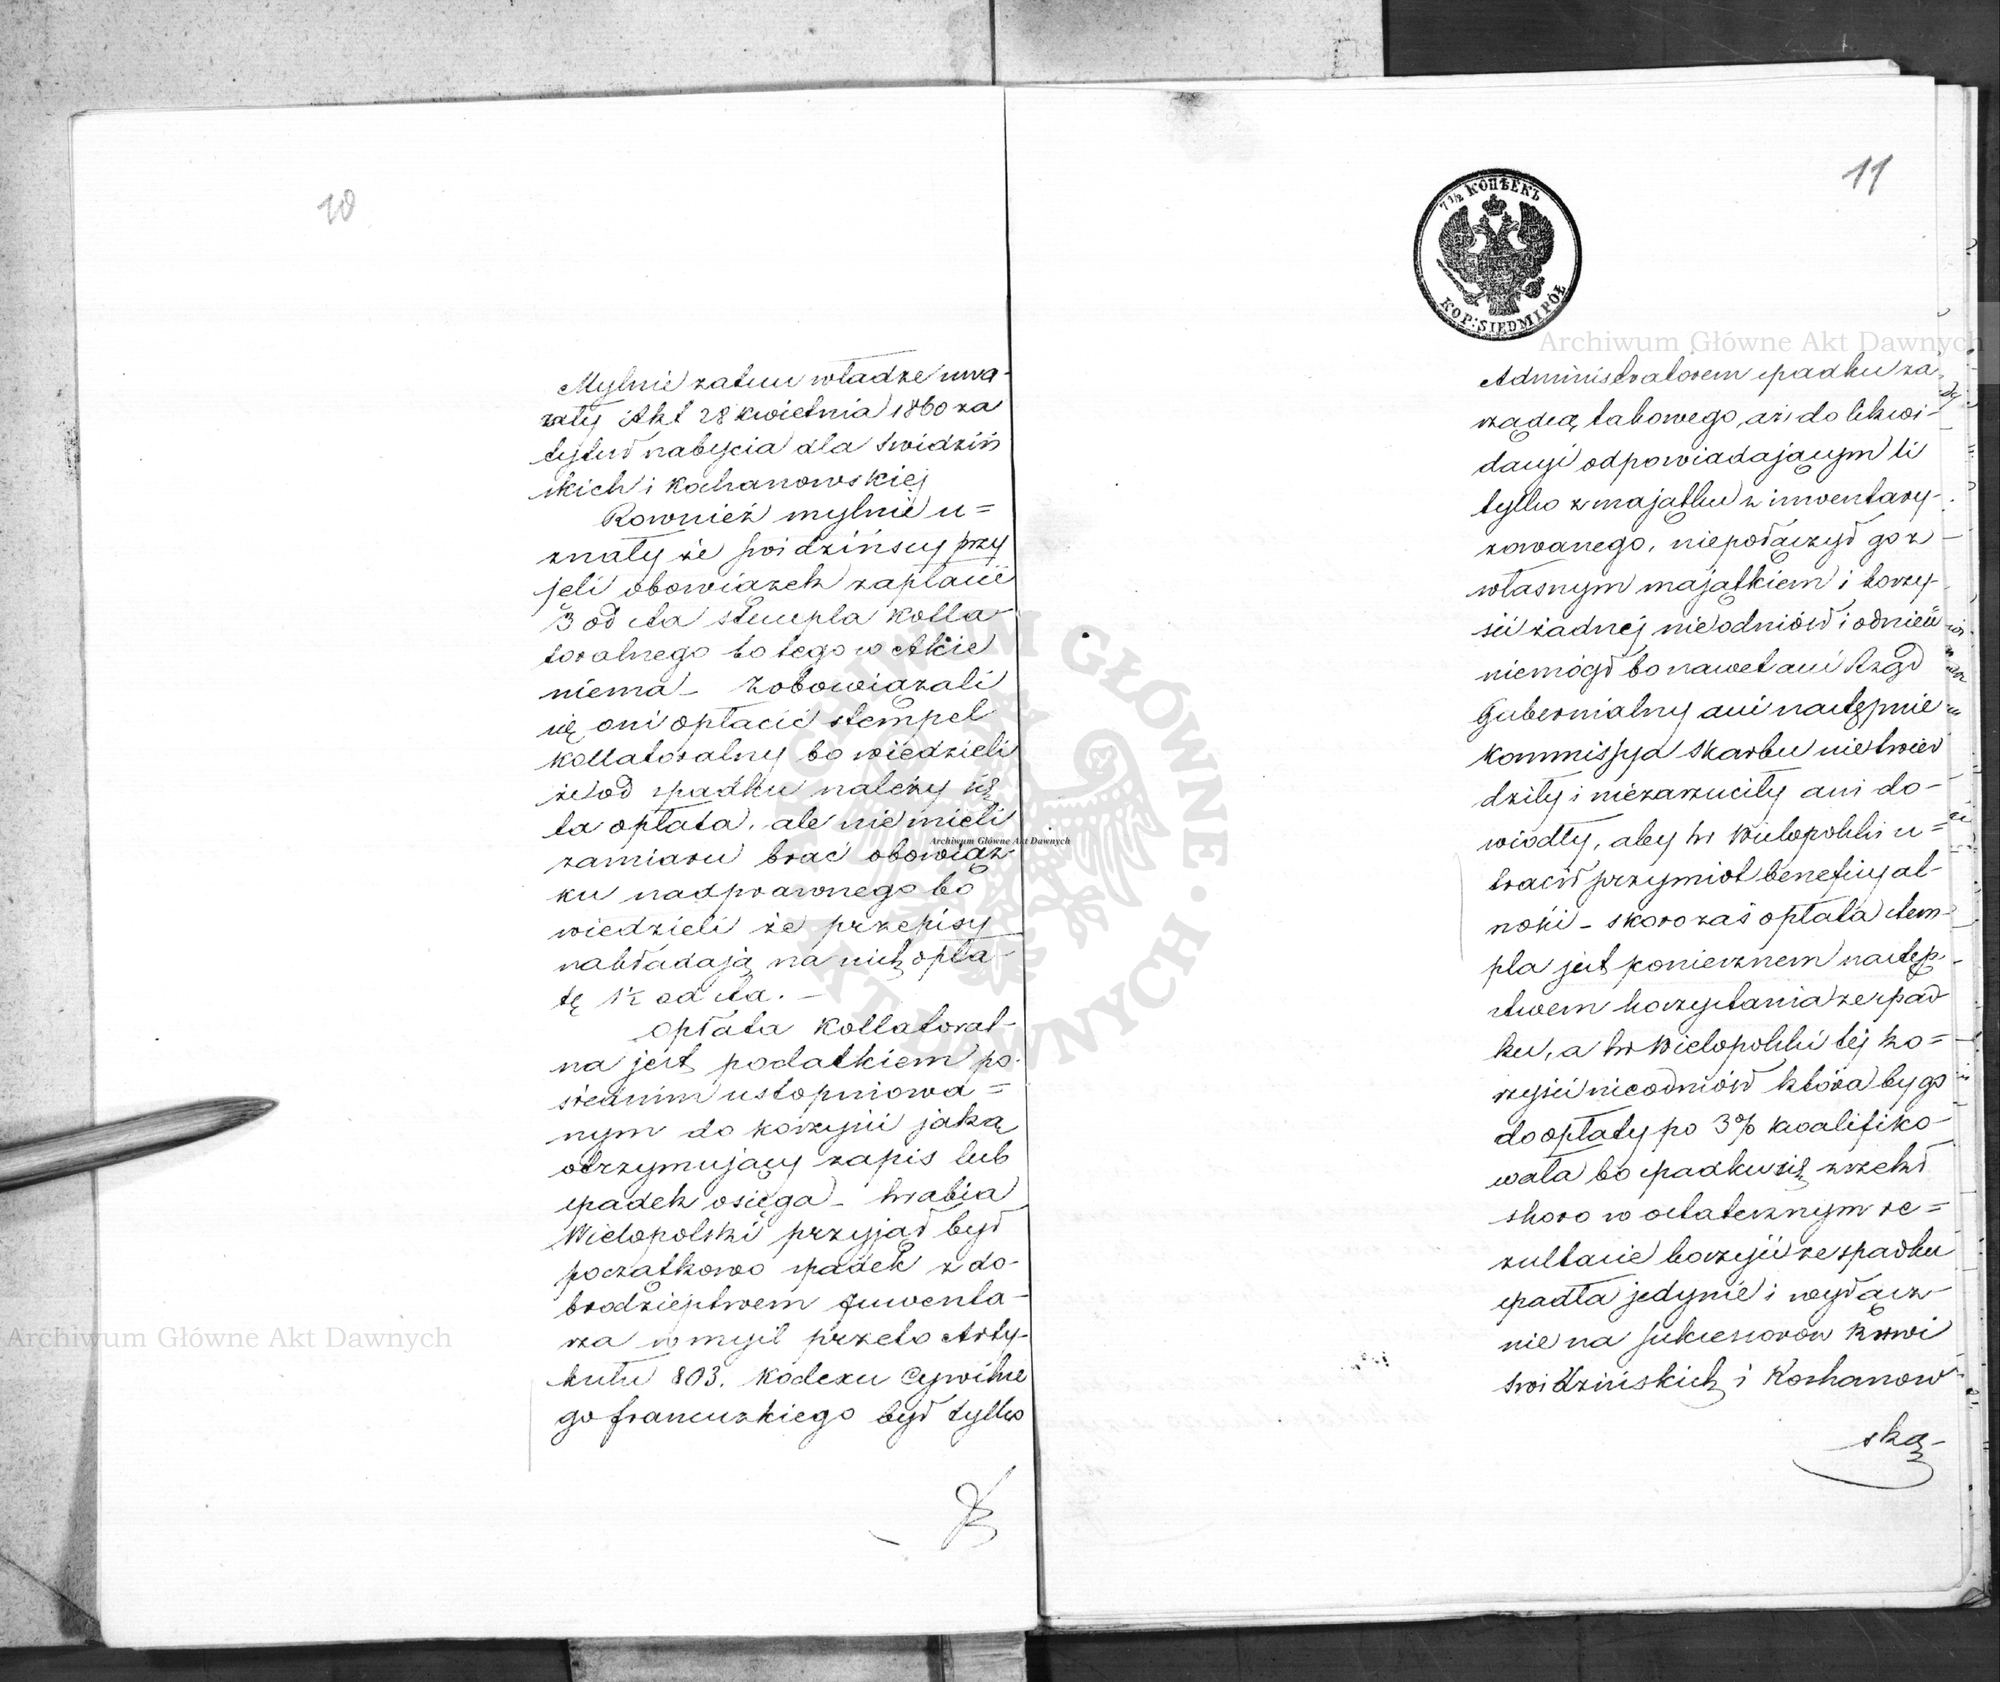 10
Mylnie zatem władze uwa-
żały Akt 28 kwietnia 1860 za
tytuł nabycia dla Swidziń
skich i Kochanowskiej
Rownież mylnie u=
znały że Swidzińscy przy
jeli obowiązek zapłacić
3 od sta stempla kolla-
toralnego bo tego w Akcie
niema - zobowiązali
się oni opłacić stempel
kollatoralny bo wiedzieli
że od spadku należy się
ta opłata, ale nie mieli
zamiaru brać obowiąz-
ku nadprawnego bo
wiedzieli że przepisy
nakładają na nich opła-
tę 1½ od sta. -
Opłata kollatoral-
na jest podatkiem po-
średnim ustopniowa=
nym do korzyści jaką
otrzymujący zapis lub
spadek osięga - hrabia
Wielopolski przyjął był
początkowo spadek z do-
brodziejstwem Inwenta-
rza w myśl przeto Arty-
kułu 803. Kodexu Cywilne
go francuzkiego był tylko
11
7½ КОПѢЕКЪ
KOP: SIEDM I PÓŁ
Administratorem spadku za-
rządcą takowego, aż do likwi-
dacyi odpowiadającym li
tylko z majątku z inwentary-
zowanego, niepołączył go z
własnym majątkiem i korzy-
ści żadnej nie odniósł i odnieść
niemógł bo nawet ani Rząd
Gubernialny ani następnie
Kommissya Skarbu nie twier
dziły i niezarzuciły ani do-
wiodły, aby hr Wielopolski u=
tracił przymiot beneficyal-
ności - skoro zaś opłata stem-
pla jest koniecznem następ-
stwem korzystania ze spad
ku, a hr Wielopolski tej ko=
rzyści nieodniósł która by go
do opłaty po 3% kwalifiko-
wała bo spadku się zrzekł
skoro w ostatecznym re=
zultacie korzyść ze spadku
spadła jedynie i wyłącz-
nie na Sukcessorow krwi
Swidzińskich i Kochanow-
ską -
Archiwum Główne Akt Dawnych
Archiwum Główne Akt Dawnych
Archiwum Główne Akt Dawnych
ARCHIWUM GŁÓWNE · AKT DAWNYCH ·